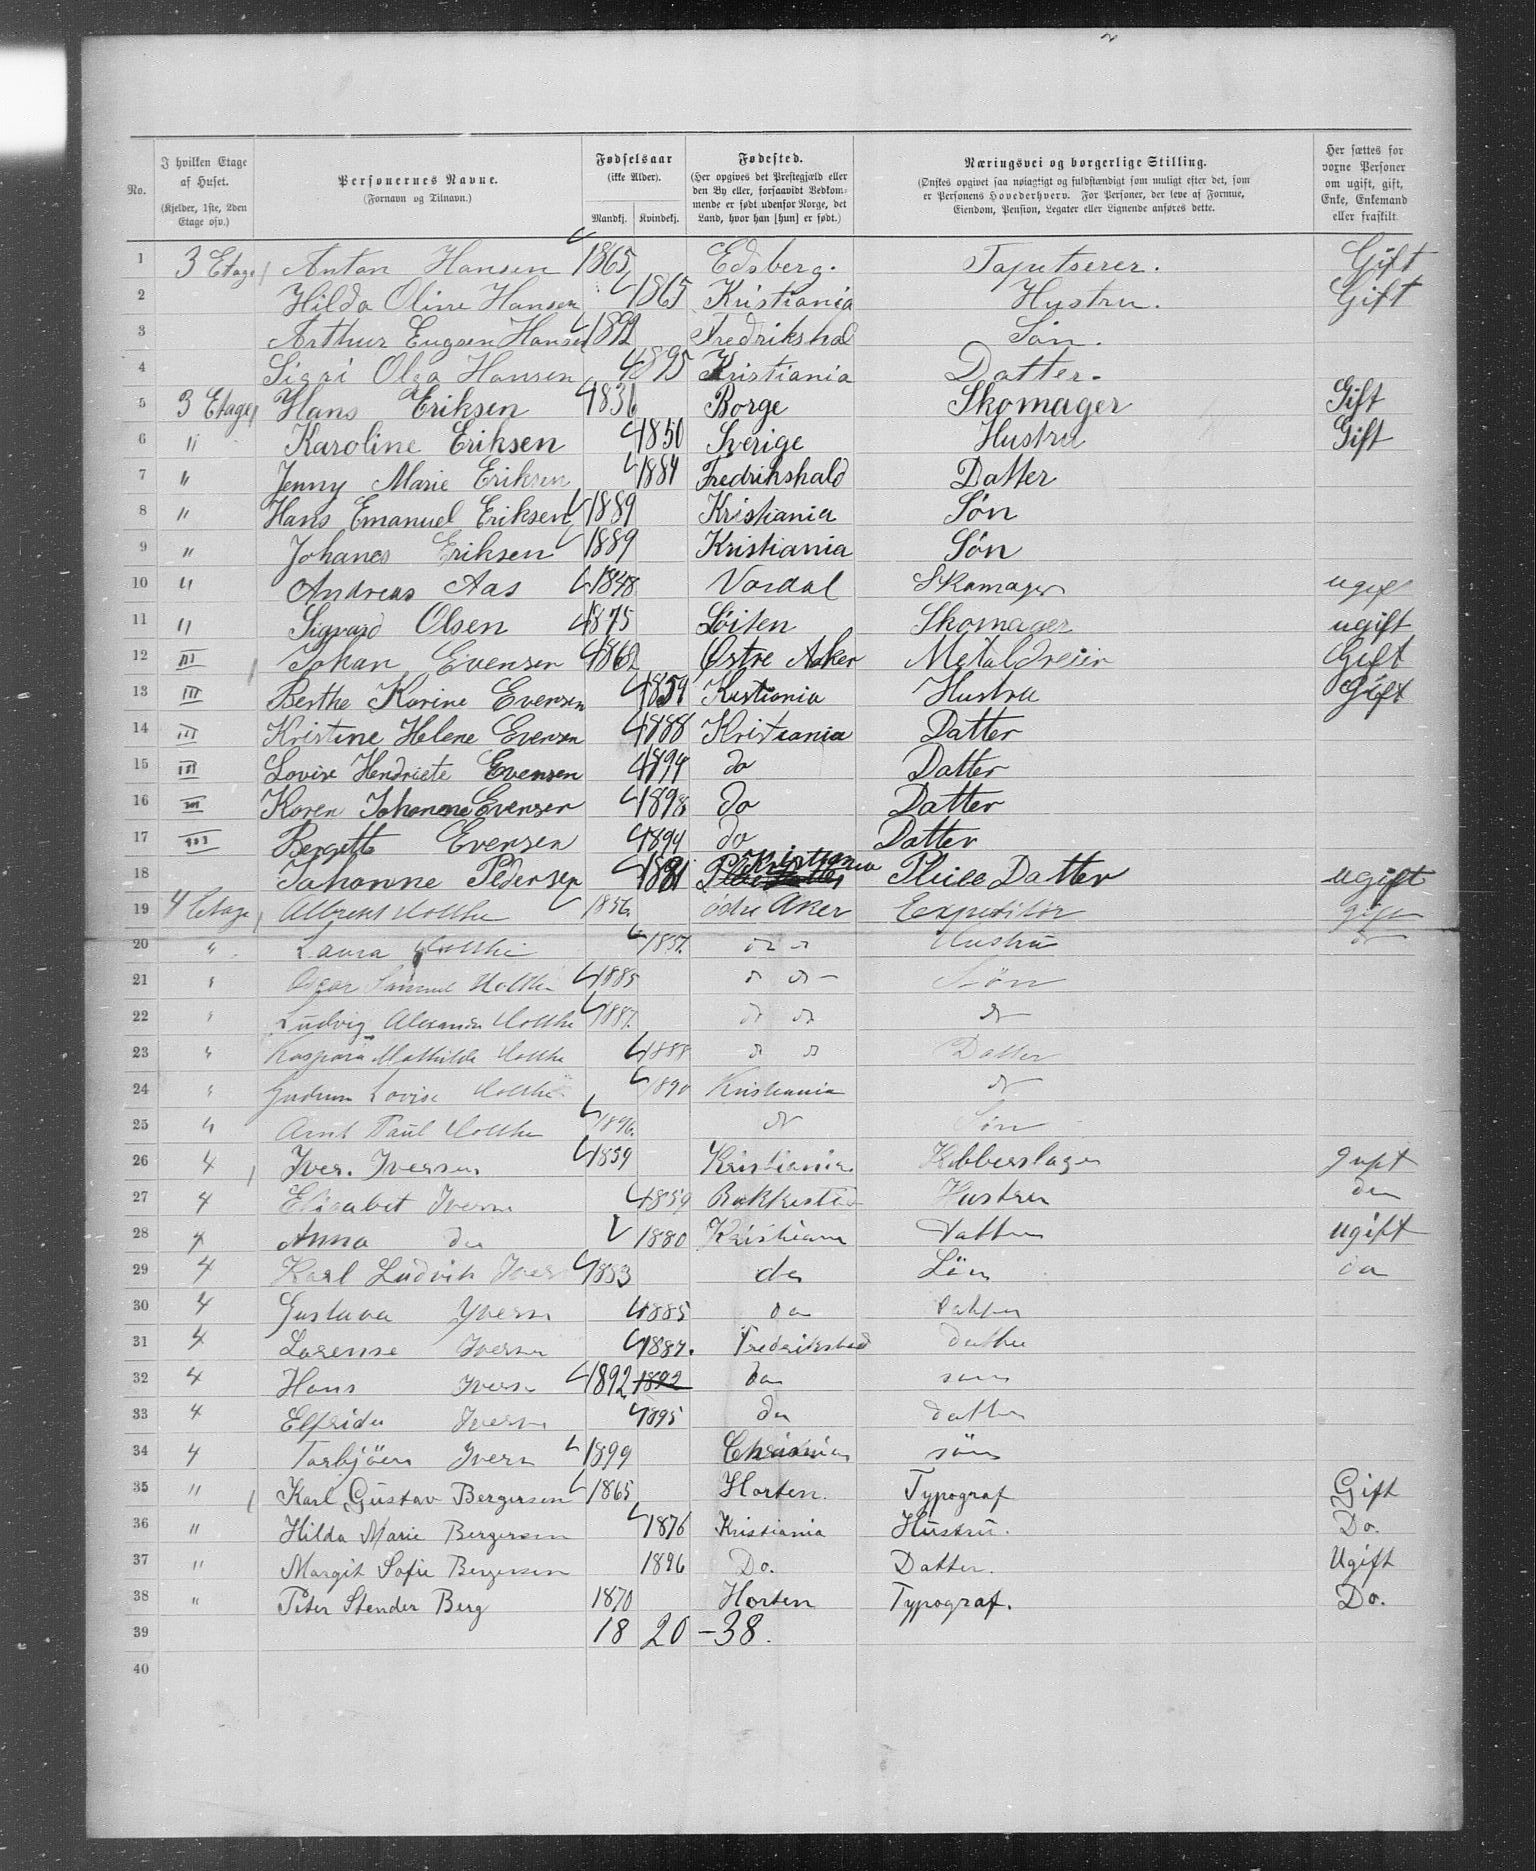 No. | I hvilken Etage af Huset. (Kjelder, 1ste, 2den Etage osv.) | Personernes Navne. (Fornavn og Tilnavn.) | Fødselsaar (ikke Alder). Mandkj. Kvindekj. | Fødested. (Her opgives det Prestegjæld eller den By eller, forsaavidt Vedkommende er født udenfor Norge, det Land, hvor han [hun] er født.) | Næringsvei og borgerlige Stilling. (Ønskes opgivet saa nøiagtigt og fuldstændigt som muligt efter det, som er Personens Hovederhverv. For Personer, der leve af Formue, Eiendom, Pension, Legater eller Lignende anføres dette. | Her sættes for voxne Personer om ugift, gift, Enke, Enkemand eller fraskilt.
1 3 Etage Anton Hansen 1865 Edsberg. Taputserer. Gift
2 Hilda Oline Hansen 1865 Kristiania Hustru. Gift
3 Arthur Eugen Hansen 1892 Fredrikshal Søn.
4 Sigri Olga Hansen 1895 Kristiania Datter.
5 3 Etage Hans Eriksen 1831 Borge Skomager Gift
6 " Karoline Eriksen 1850 Sverige Hustru Gift
7 " Jenny Marie Eriksen 1884 Fredrikshald Datter
8 " Hans Emanuel Eriksen 1889 Kristiania Søn
9 " Johanes Eriksen 1889 Kristiania Søn
10 " Andreas Aas 1848 Vardal Skomager ugift
11 " Sigvard Olsen 1875 Løiten Skomager ugift
12 III Johan Evensen 1862 Østre Aker Metaldreier Gift
13 III Berthe Karine Evensen 1859 Kristiania Hustru Gift
14 III Kristine Helene Evensen 1888 Kristiania Datter
15 III Lovise Hendriete Evensen 1894 do Datter
16 III Karen Johanne Evensen 1898 do Datter
17 III Bergette Evensen 1894 do Datter
18 Johanne Pedersen 1881 Kristiania Pleie Datter ugift
19 4 Etage Albrekt Holthe 1856 østre Aker Expeditør gift
20 " Laura Holthe 1857. do do Hustru do
21 " Oscar Samuel Holthe 1885 do do Søn
22 " Ludvig Alexander Holthe 1887. do do do
23 " Kaspara Mathilde Holthe 1888 do do Datter
24 " Gudrun Lovise Holthe 1890 Kristiania do
25 " Arnt Paul Holthe 1896. do Søn
26 4 Iver. Iversen 1859 Kristiania Kobberslager gift
27 4 Elisabet Iversn 1859 Hustru do
28 4 Anna do 1880 Kristiania Datter ugift
29 4 Karl Ludvik Iver 1883 do Søn do
30 4 Gustava Yversn 1885 do datter
31 4 Lorense Iversn 1887. Fredrikstad datter
32 4 Hans Iversn 1892 1892 do søn
33 4 Elfrida Iversn 1895 do datter
34 4 Torbjörn Iversn 1899 Chrisania søn
35 " Karl Gustav Bergersen 1865 Horten. Typograf Gift
36 " Hilda Marie Bergersen 1876 Kristiania Hustru. Do.
37 " Margit Sofie Bergersen 1896 Do. Datter. Ugift
38 " Peter Stender Berg 1870 Horten Typograf. Do.
39 18 20 - 38.
40